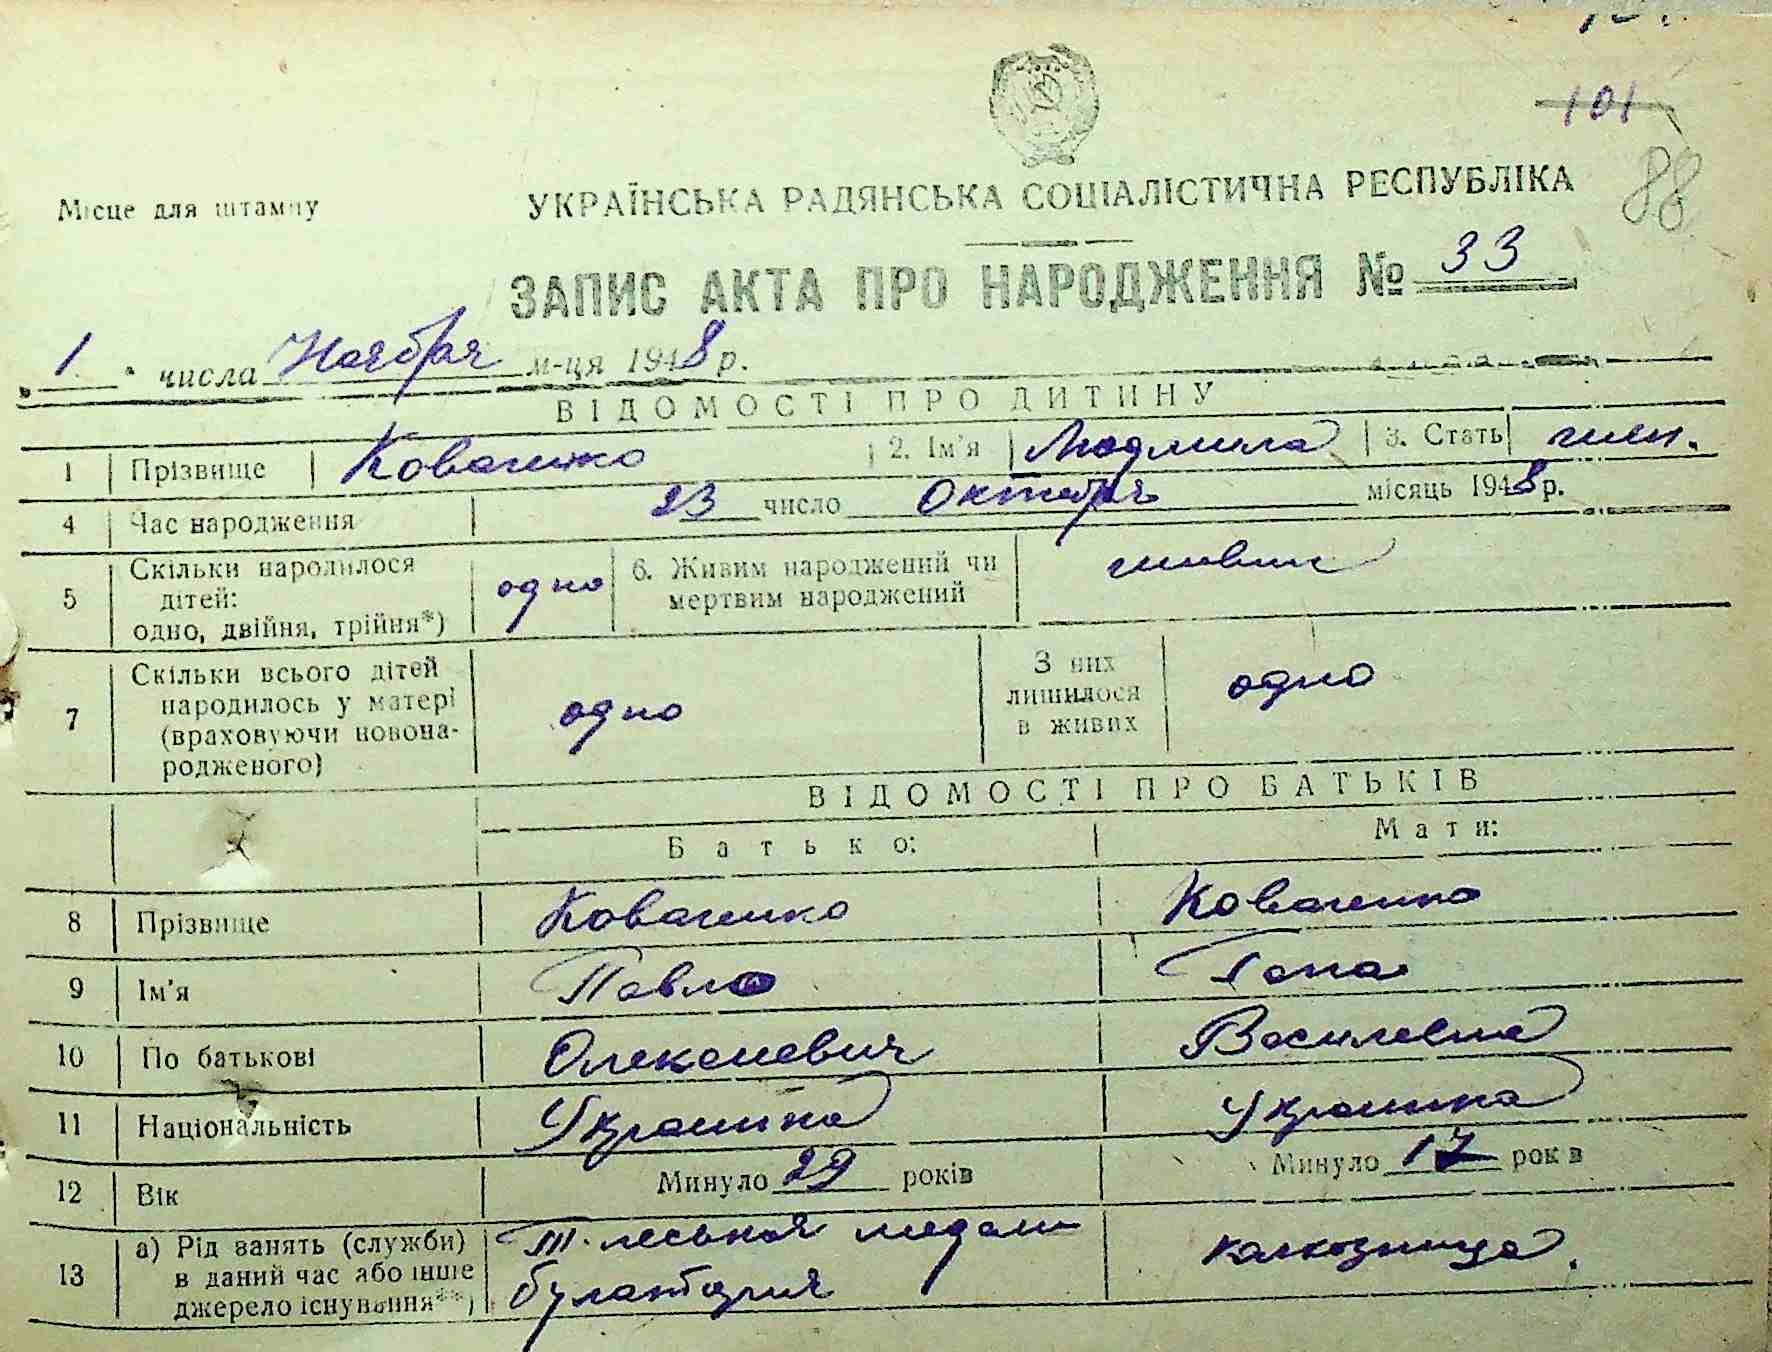 101
88
Місце для штампу
УКРАЇНСЬКА РАДЯНСЬКА СОЦІАЛІСТИЧНА РЕСПУБЛІКА
ЗАПИС АКТА ПРО НАРОДЖЕННЯ № 33
„ 1 " числа Ноября м-ця 1948 р.
ВІДОМОСТІ ПРО ДИТИНУ
1 Прізвище Коваленко 2. Ім'я Людмила 3. Стать жен.
4 Час народження 23 число Октября місяць 1948 р.
5 Скільки народилося дітей: одно, двійня, трійня*) одно 6. Живим народжений чи мертвим народжений живим
7 Скільки всього дітей народилось у матері (враховуючи новонародженого) одно З них лишилося в живих одно
ВІДОМОСТІ ПРО БАТЬКІВ
Батько: Мати:
8 Прізвище Коваленко Коваленко
9 Ім'я Павло Гана
10 По батькові Олексиевич Василевна
11 Національність Украинка Украинка
12 Вік Минуло 29 років Минуло 17 років
13 а) Рід занять (служби) в даний час або інше джерело існування**) колхозница.